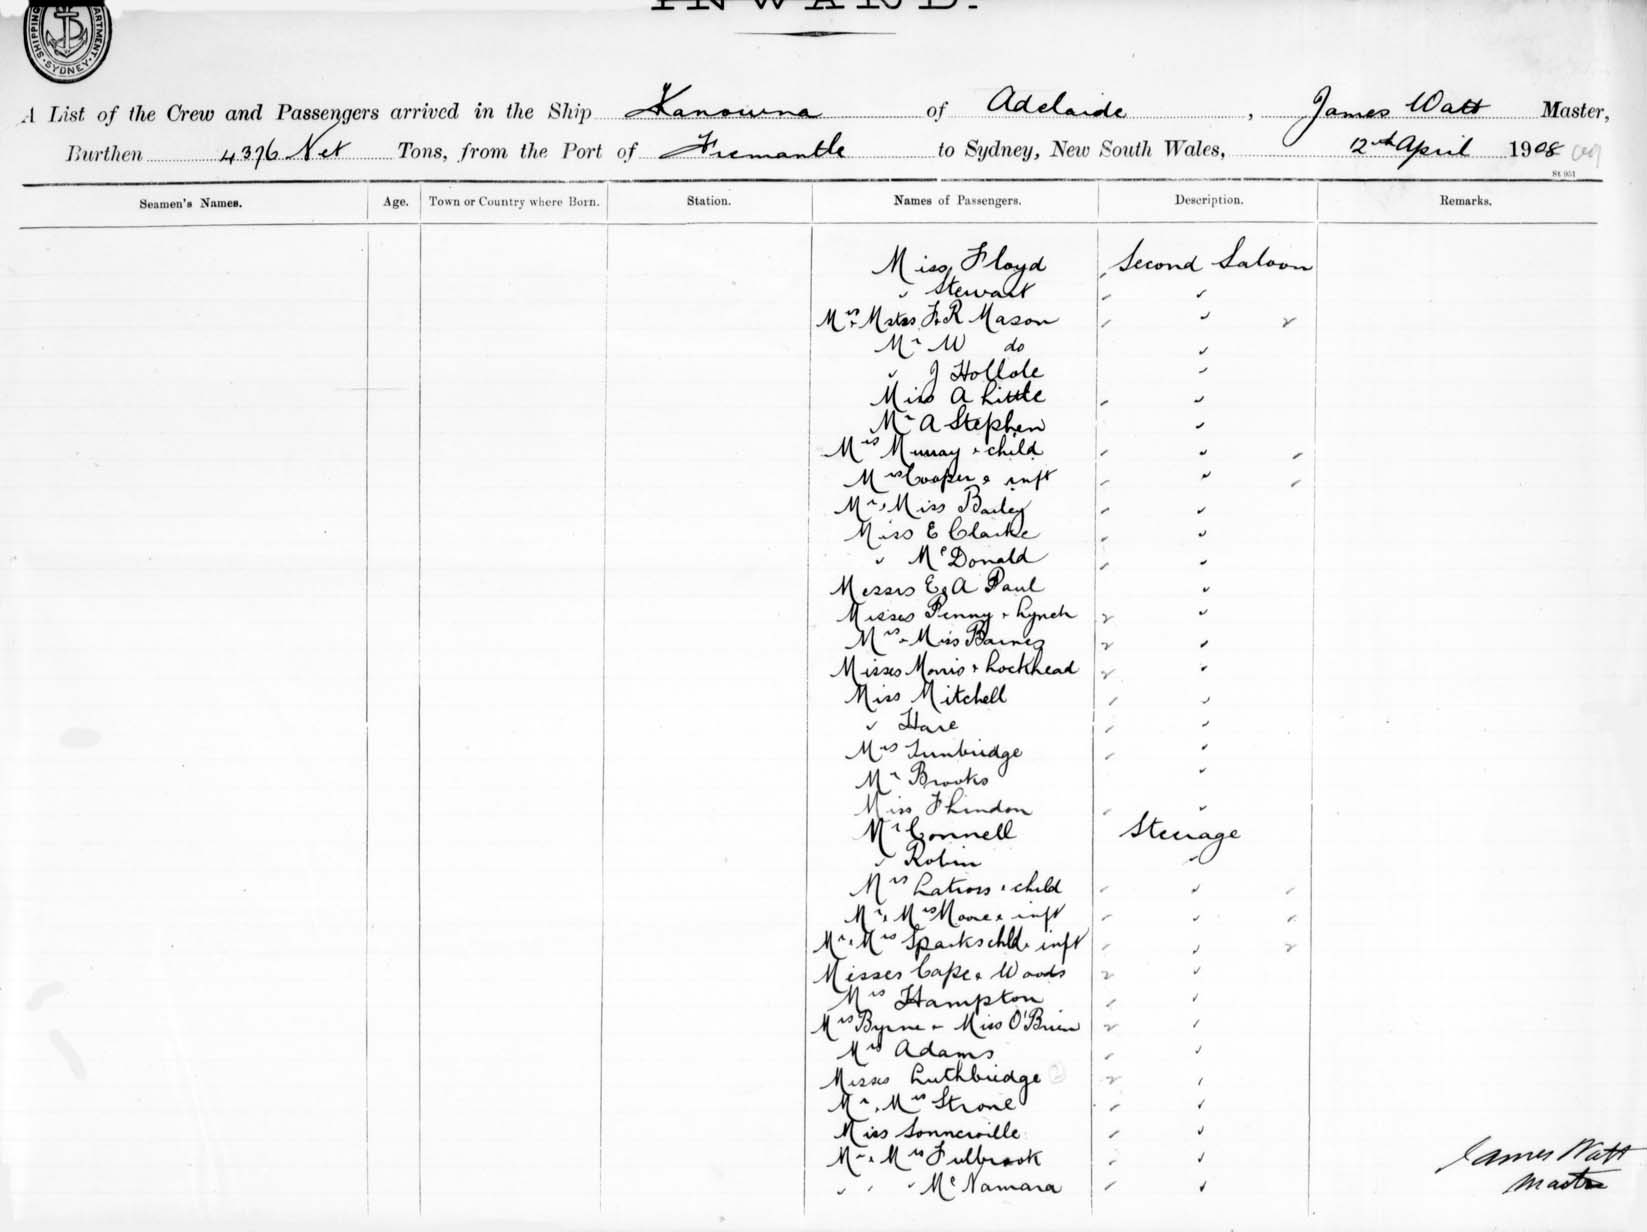 INWARD.
SHIPPING DEPARTMENT SYDNEY
A List of the Crew and Passengers arrived in the Ship Kanowna of Adelaide, James Watt Master,
Burthen 4376 Net Tons, from the Port of Fremantle to Sydney, New South Wales, 12th April 1908
St 951
Seamen's Names. Age. Town or Country where Born. Station. Names of Passengers. Description. Remarks.
Miss Floyd Second Saloon
" Stewart "
Mrs & Mstrs F & R Mason "
Mr W do "
" J Hollole "
Miss A Little "
Mr A Stephen "
Mrs Murray & child "
Mrs Cooper & inft "
Mr & Miss Bailey "
Miss E Clarke "
" McDonald "
Messrs E & A Paul "
Misses Penny & Lynch "
Mrs & Miss Barnes "
Misses Morris & Lockhead "
Miss Mitchell "
" Hare "
Mrs Tunbridge "
Mr Brooks "
Miss "
Mr Connell Steerage
" Robin "
Mrs & child "
Mr & Mrs Moore & inft "
Mr & Mrs Sparks chld & inft "
Misses Cape & Woods "
Mrs Hampton "
Mrs Byrne & Miss O'Brien "
Mrs Adams "
Misses Luthbridge 2 "
Mr & Mrs Strone "
Miss Sonnerville "
Mr & Mrs Fulbrook "
" " " McNamara "
James Watt
Master